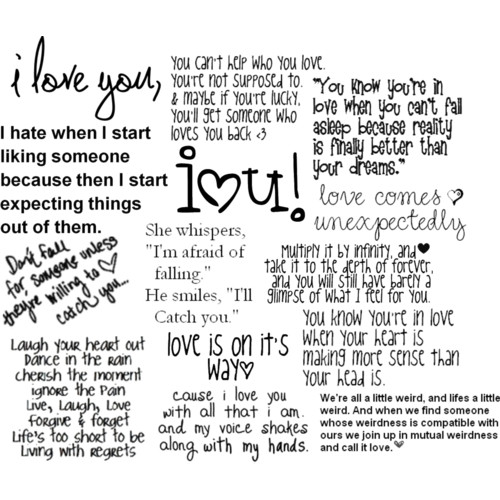 i love you,
I hate when I start
liking someone
because then I start
expecting things
out of them.
You can't help who you love.
You're not supposed to.
& maybe if you're lucky,
you'll get someone who
loves you back <3
"You know you're in
love when you can't fall
asleep because reality
is finally better than
your dreams."
i♥u!
love comes ♡
unexpectedly
Don't fall
for someone unless
they're willing to ♡
catch you...
She whispers,
"I'm afraid of
falling."
He smiles, "I'll
Catch you."
Multiply it by infinity, and♥
take it to the depth of forever,
and you will still have barely a
glimpse of what I feel for you.
Laugh your heart out
Dance in the rain
cherish the moment
ignore the Pain
Live, Laugh, Love
Forgive & forget
Life's too short to be
Living with regrets
love is on it's
way♡
You know you're in love
when your heart is
making more sense than
your head is.
cause i love you
with all that i am.
and my voice shakes
along with my hands.
We're all a little weird, and lifes a little
weird. And when we find someone
whose weirdness is compatible with
ours we join up in mutual weirdness
and call it love.♥